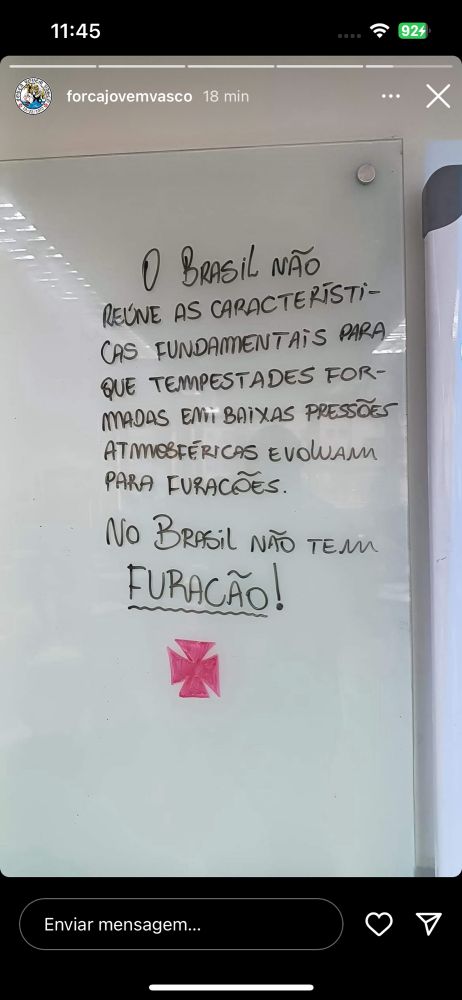 11:45
92
forcajovemvasco 18 min
O BRASIL NÃO
REÚNE AS CARACTERÍSTI-
CAS FUNDAMENTAIS PARA
QUE TEMPESTADES FOR-
MADAS EM BAIXAS PRESSÕES
ATMOSFÉRICAS EVOLUAM
PARA FURACÕES.
NO BRASIL NÃO TEM
FURACÃO!
Enviar mensagem...